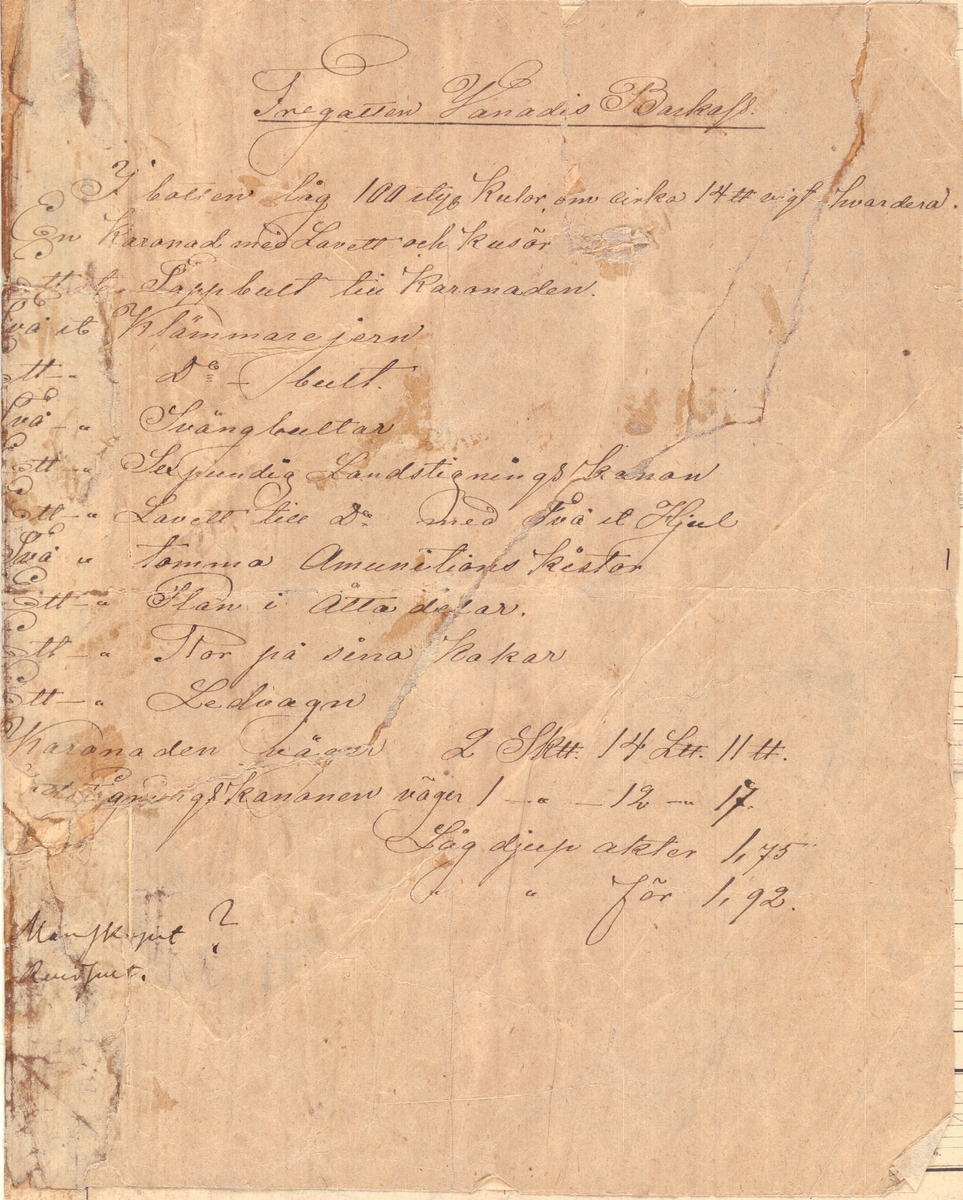 Fregatten Vanadis Barkass.
I botten låg 100 styk Kulor, om cirka 14 ℔ vigt hvardera.
En Karonad med Lavett och Kusör
Ett st Tappbult till Karonaden.
Två st Klämmare jern
Ett - Do - bult.
Två - " Svängbultar
Ett - " Sexpundig Landstignings Kanon
Ett - " Lavett till Do med Två st Hjul
Två " tomma Amunitions Kistor
Ett - " Flan i Åtta delar.
Ett - " Stor på sina Hakar
Ett - " Ledvagn
Karonaden väger 2 Sk℔. 14 L℔. 11 ℔.
Kanonen väger 1 - " - 12 - " 17.
Låg djup akter 1,75
" " för 1,92.
Manskapet ?